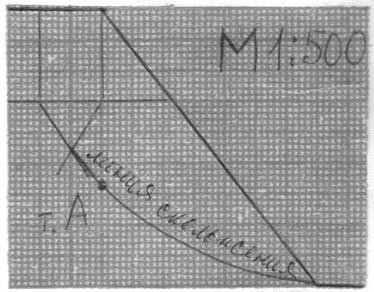 М 1:500
линия скольжения
т. А